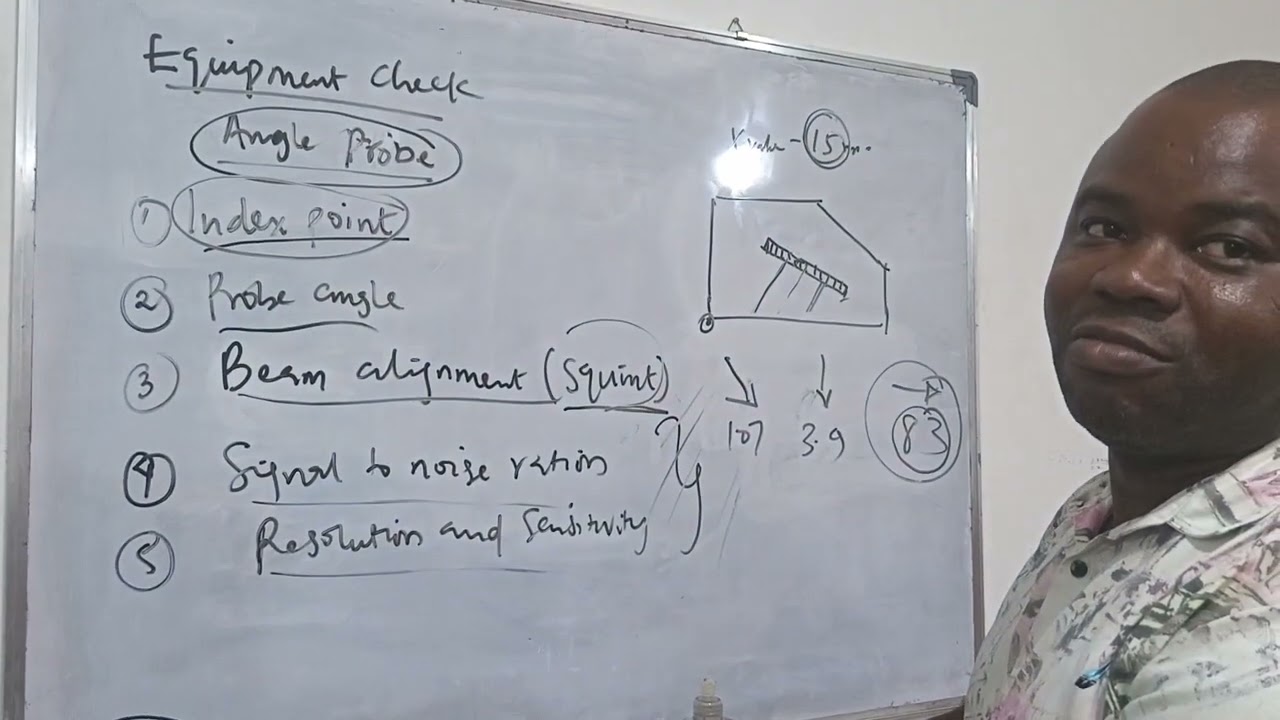 Equipment check
Angle Probe
1 Index point
2 Probe angle
3 Beam alignment (Squint)
4 Signal to noise ration
5 Resolution and Sensitivity
X value - 15mm.
107 3.9 83